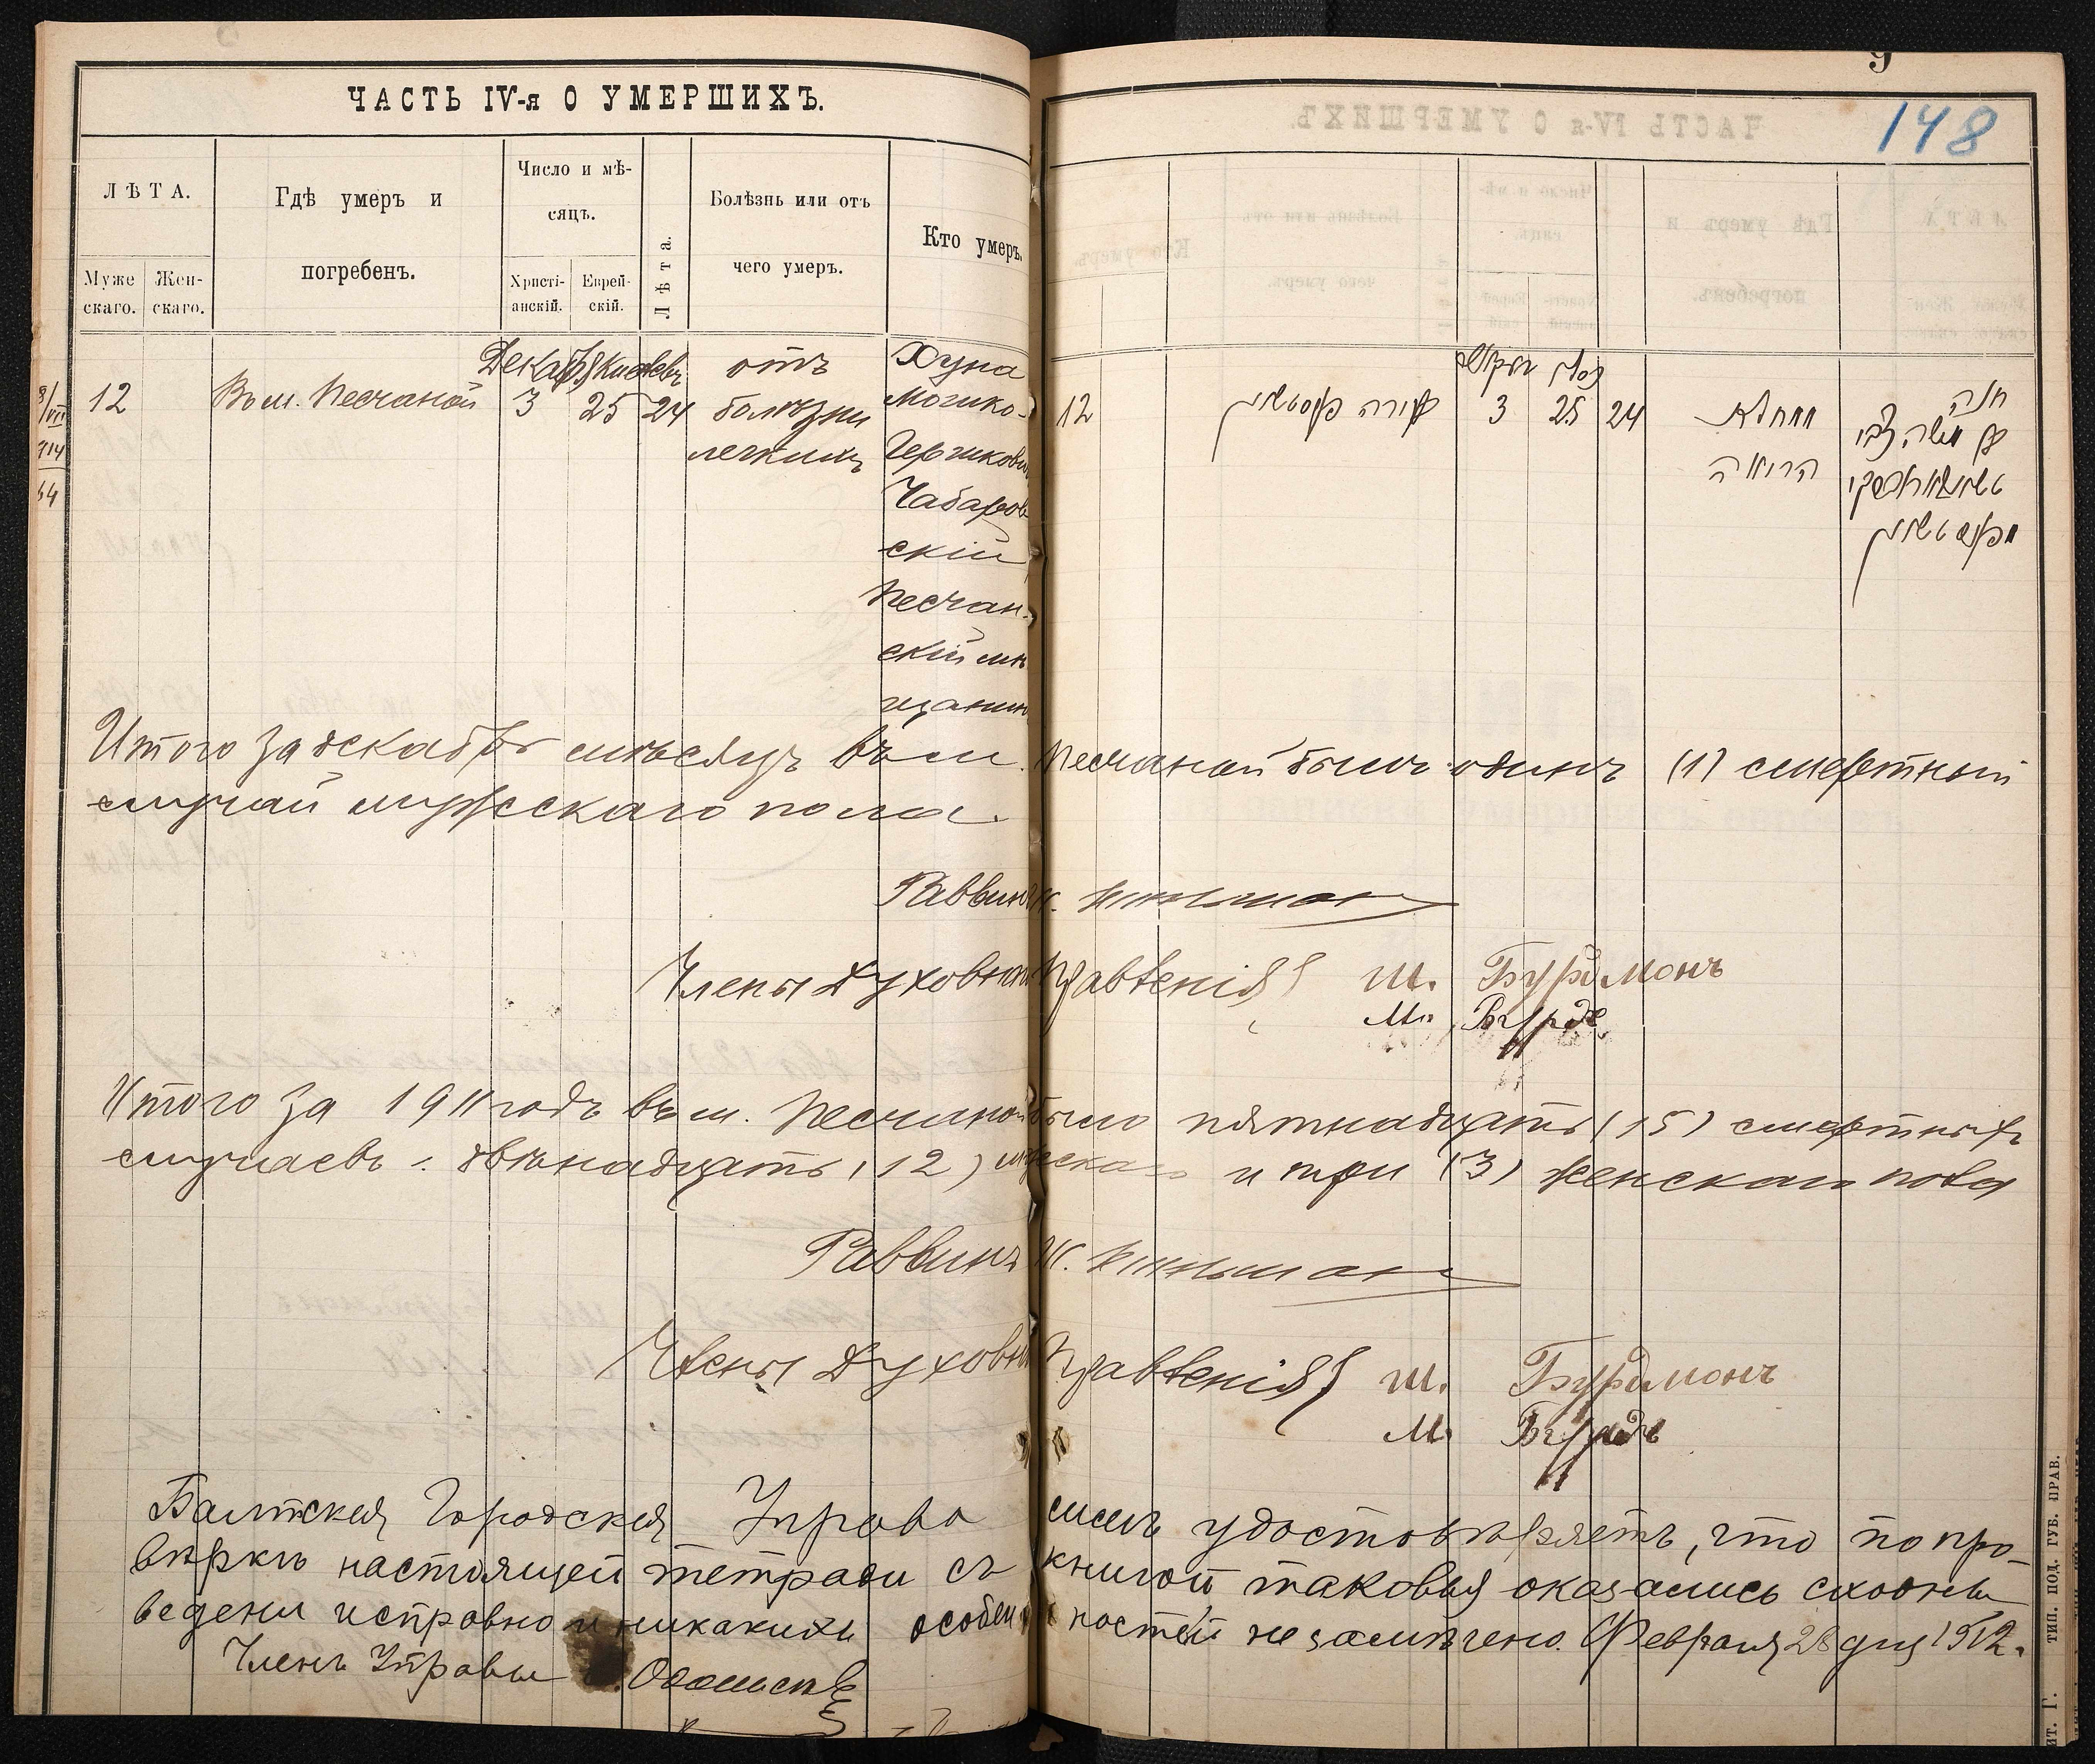 ЧАСТЬ IV-я О УМЕРШИХЪ.
148
ЛѢТА.
Гдѣ умеръ и
погребенъ.
Число и мѣ-
сяцъ.
Лѣта.
Болѣзнь или отъ
чего умеръ.
Кто умеръ.
Муже
скаго.
Жен-
скаго.
Христі-
анскій.
Еврей-
скій.
12
Въ м. Песчаной
Декабря
3
Кислевъ
25
24
отъ
болѣзни
легкихъ
Хуна
Мошко-
Гершкови
Чабаров
скій
Песчан-
скій мѣ
щанинъ
12
3
25
24
חנה
Итого за декабрь мѣсяцъ въ м. Песчаной былъ одинъ (1) смертный
случай мужескаго пола.
Раввинъ
Члены Духовн Правленія Ш. Бурдмонъ
М. Бурдъ
Итого за 1911 годъ въ м. Песчаной было пятнадцать (15) смертныхъ
случаевъ: двѣнадцать (12) мужескаго и три (3) женскаго пола
Раввинъ
Члены Духовн Правленія Ш. Бурдмонъ
М. Бурдъ
Балтская Городская Управа симъ удостовѣряетъ, что по про-
вѣркѣ настоящей тетради съ книгой таковыя оказались сходны
ведены исправно и никакихъ особенностей не замѣчено. Февраля 28 дня 1912.
Членъ Управы
ТИП. ПОД. ГУБ. ПРАВ.